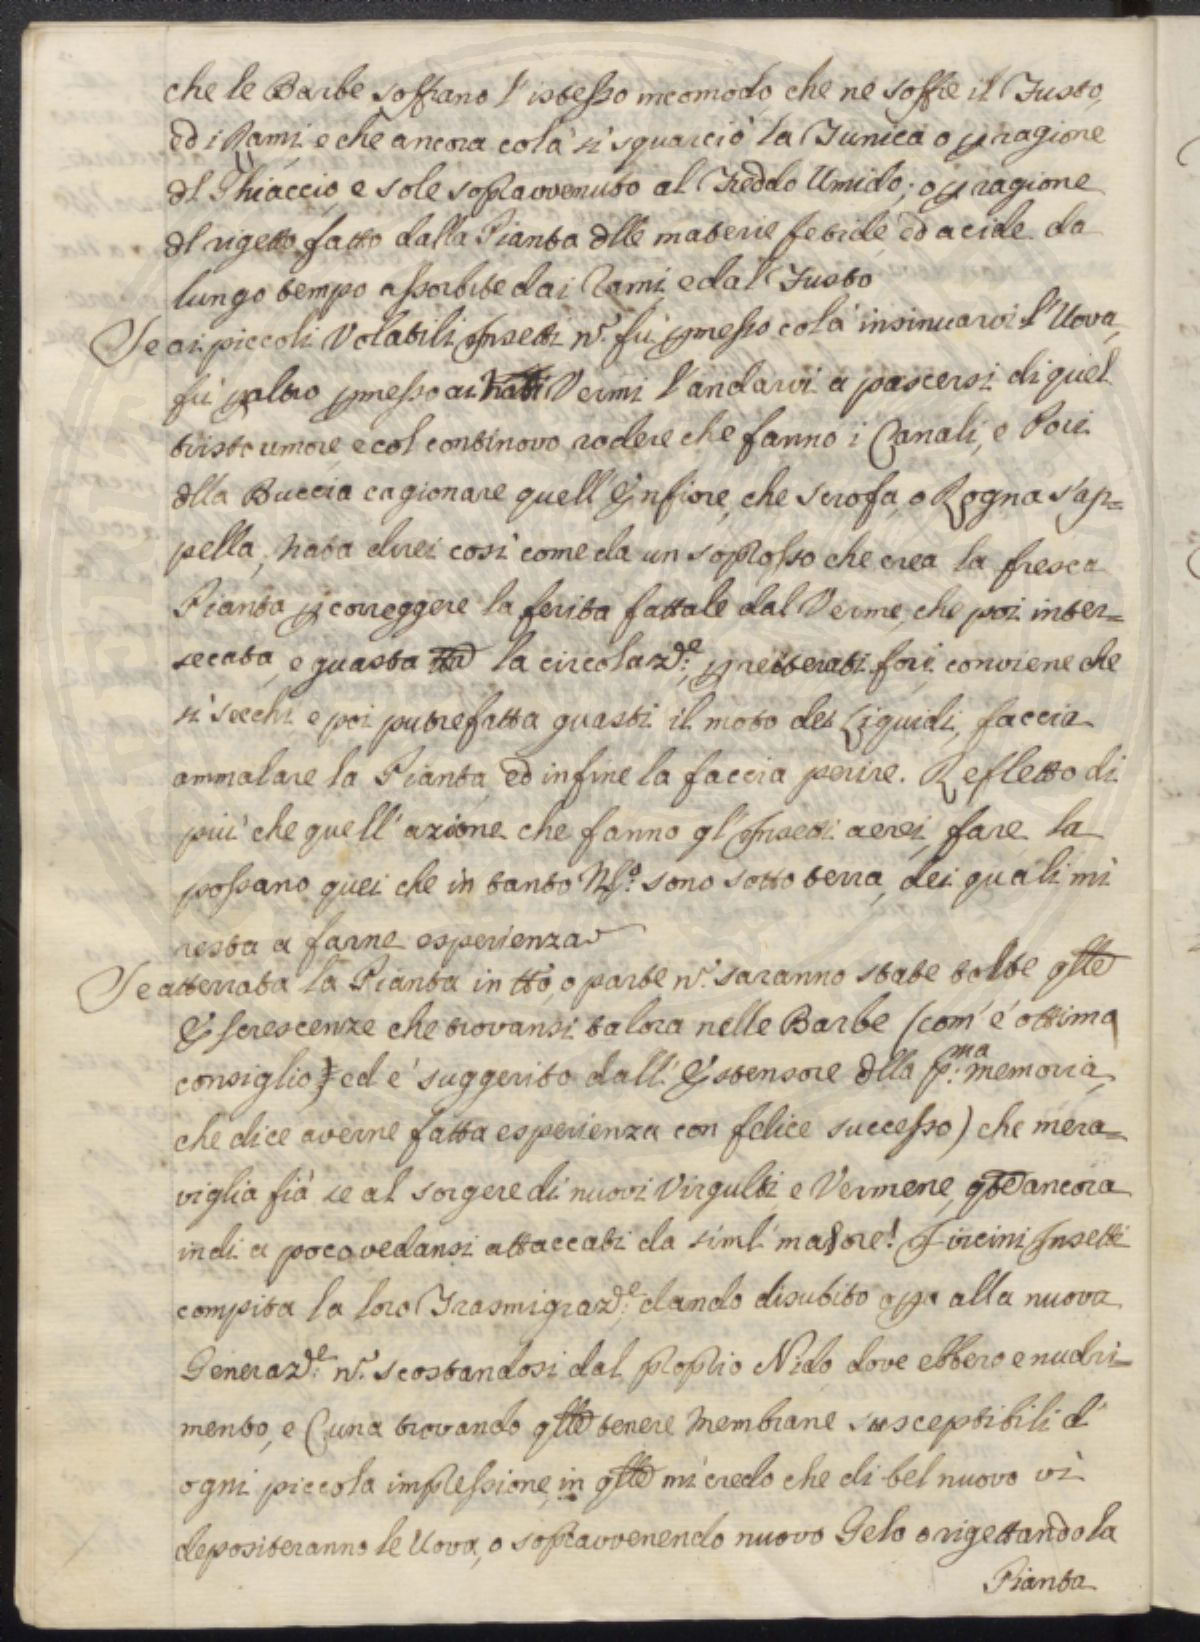 che le Barbe soffrano l'istesso incomodo che ne soffre il Fusto,
ed i Rami, e che ancora colà si squarciò la Tunica o p ragione
dl Ghiaccio, e sole sopravvenuto al Freddo Umido; o p ragione
dl rigetto fatto dalla Pianta dlle materie fetide, ed acide da
lungo tempo assorbite dai Rami, e dal Fusto
Se ai piccoli Volatili Insetti n. fù pmesso colà insinuarvi l'Uova,
fù paltro pmesso ai Vermi l'andarvi a pascersi di quel
tristo umore, e col continovo rodere che fanno i Canali, e Pori
dlla Buccia cagionare quell'Enfiore, che scrofa, o Rogna s'ap=
pella, nata direi così come da un soprosso che crea la fresca
Pianta p correggere la ferita fattale dal Verme, che poi inter=
secata, e guasta tta la circolaz.e, p reiterati fori, conviene che
si secchi e poi putrefatta guasti il moto dei Liquidi, faccia
ammalare la Pianta, ed infine la faccia perire. Refletto di
più che quell'azione che fanno gl'Insetti aerei, fare la
possano quei che in tanto N.o sono sotto terra, dei quali mi
resta a farne esperienza
Se atterrata la Pianta in tto, o parte n. saranno state tolte qlle
Escrescenze che trovansi talora nelle Barbe (com'è ottimo
consiglio, ed è suggerito dall'Estensore dlla p.ma memoria,
che dice averne fatta esperienza con felice successo) che mera=
viglia fià se al sorgere di nuovi Virgulti, e Vermene, qte ancora
indi a poco vedansi attaccati da siml malore! I vicini Insetti
compita la loro Trasmigraz.e dando disubito opa alla nuova
Generaz.e n. scostandosi dal proprio Nido dove ebbero e nudri=
mento, e Cuna trovando qlle tenere Membrane susceptibili d'
ogni piccola impressione, in qlle mi credo che di bel nuovo vi
depositeranno le Uova, o sopravvenendo nuovo Gelo o rigettando la
Pianta